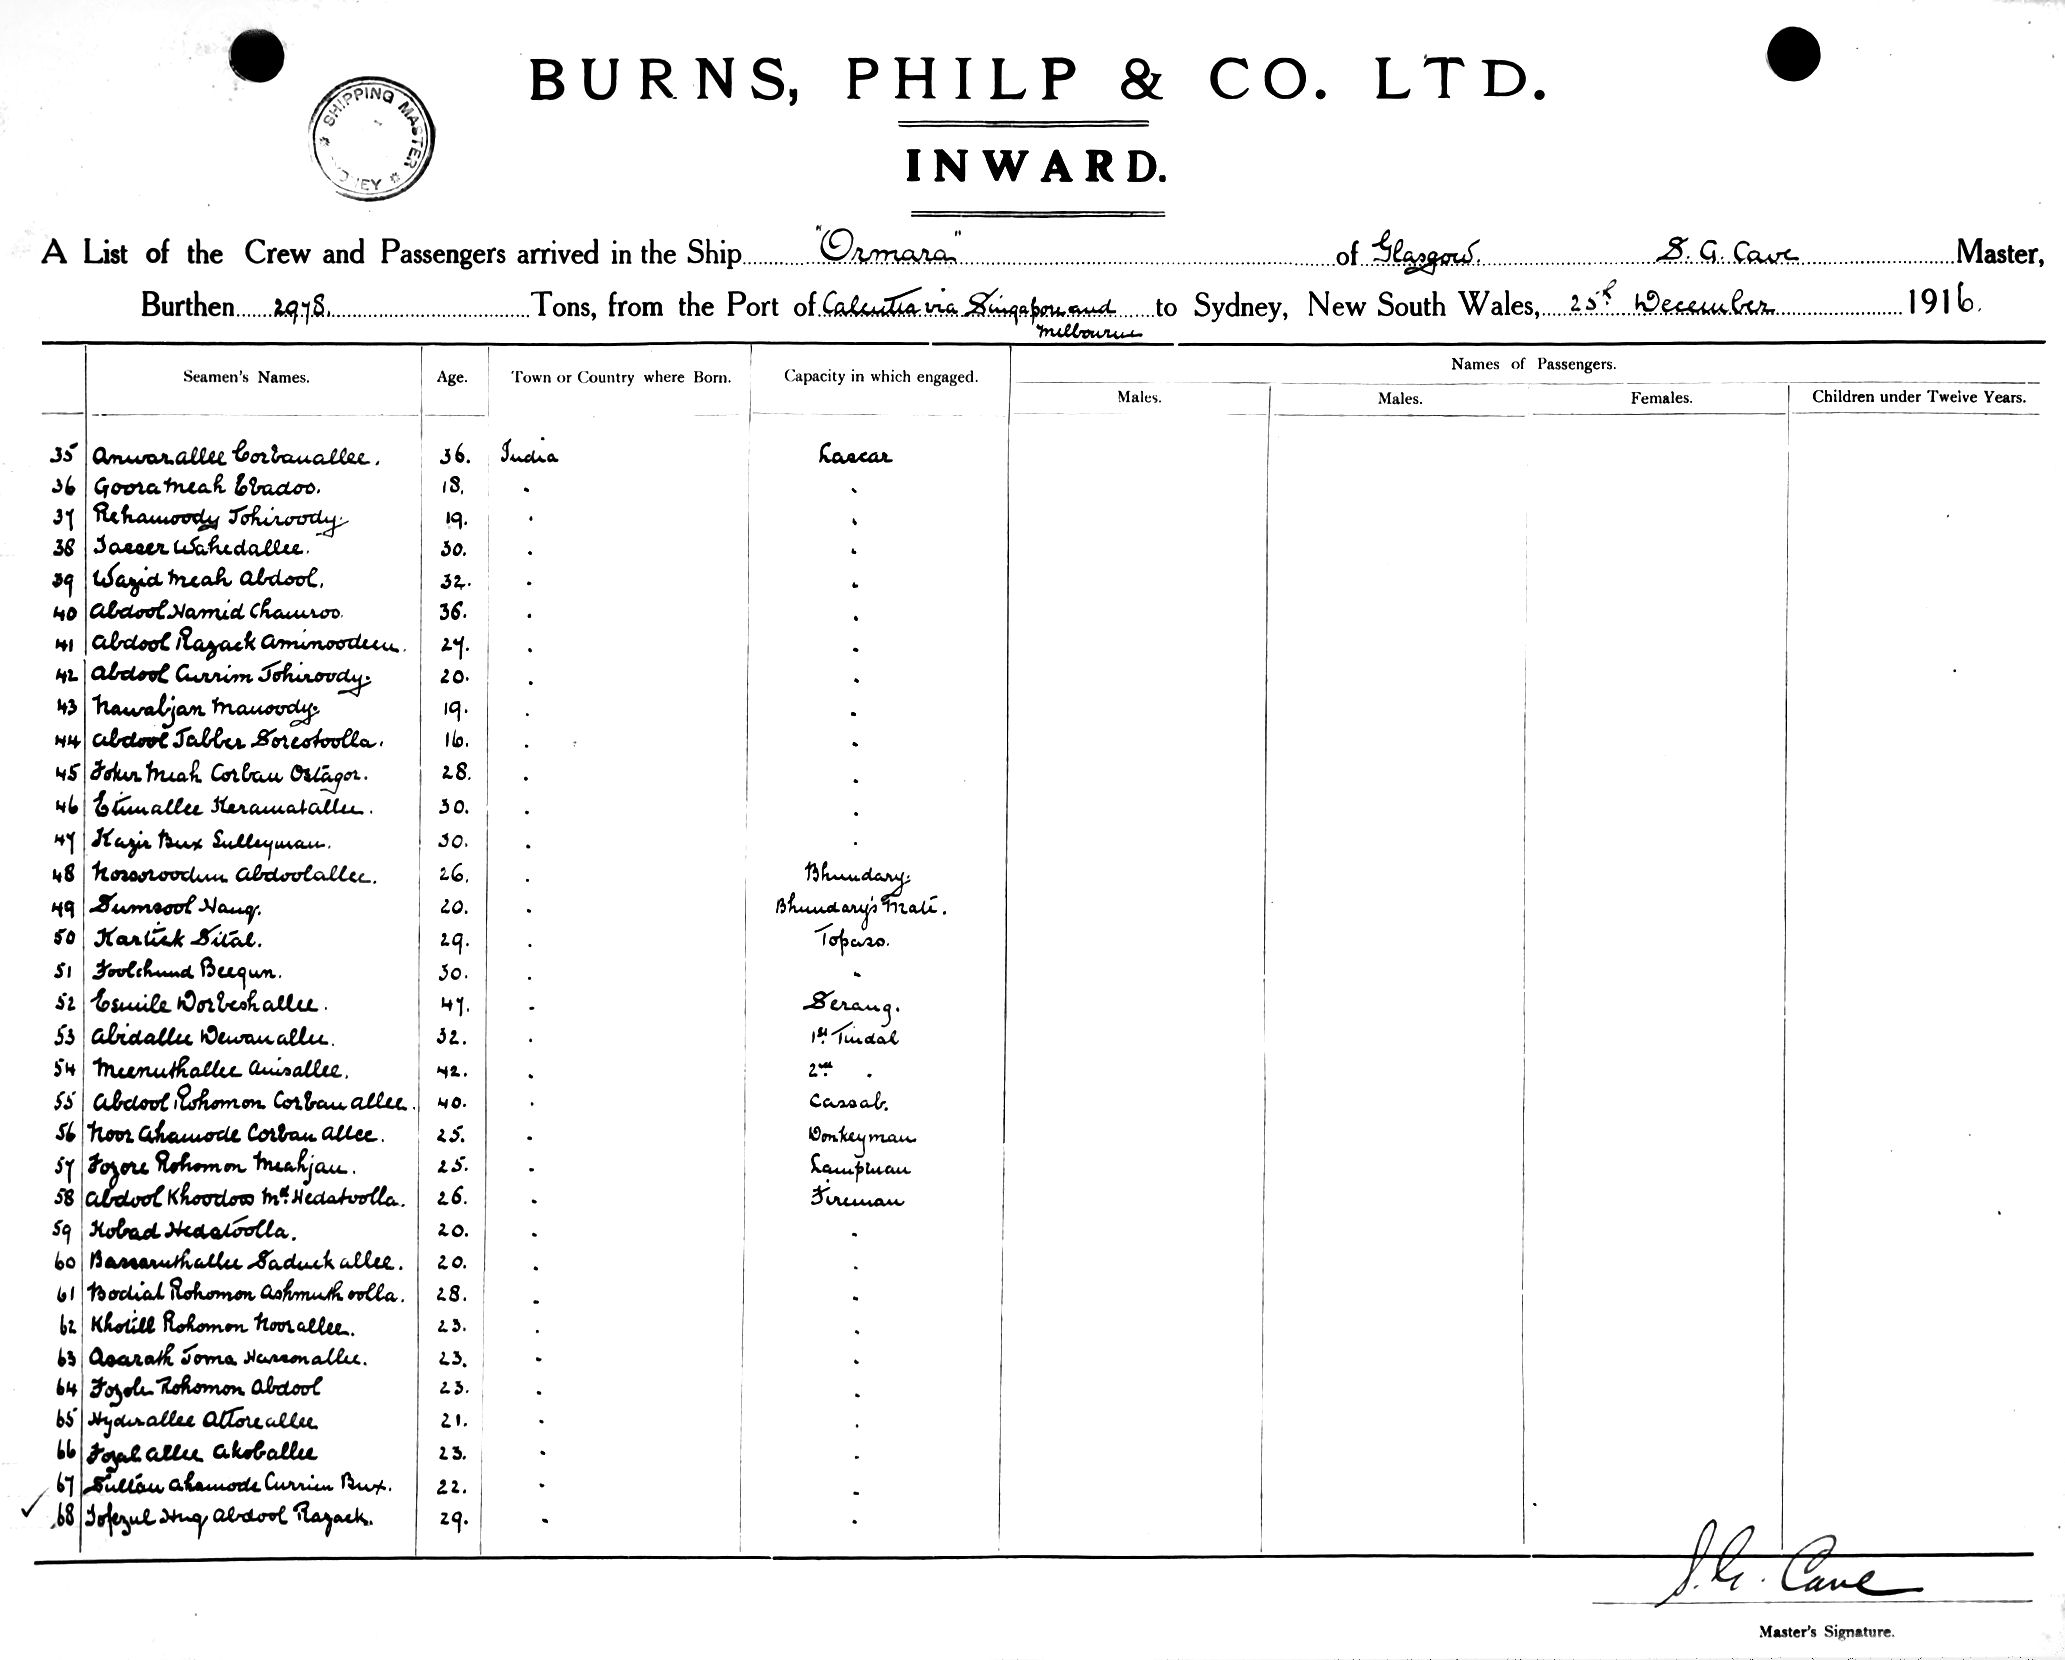 SHIPPING MASTER * NEY *
BURNS, PHILP & CO. LTD.
INWARD.
A List of the Crew and Passengers arrived in the Ship "Ormara" of Glasgow. S. G. Cave Master,
Burthen 2978. Tons, from the Port of Calcutta via Singapore and Melbourne to Sydney, New South Wales, 25th December 1916.
Seamen's Names. Age. Town or Country where Born. Capacity in which engaged. Names of Passengers.
Males. Males. Females. Children under Twelve Years.
35 Anwarallee Corbanallee. 36. India Lascar
36 Goora Meah Ebadoo. 18. " "
37 Rehamoody Tohiroody. 19. " "
38 Wahedallee. 30. " "
39 Wazid Meah Abdool. 32. " "
40 Abdool Hamid Chamroo. 36. " "
41 Abdool Razack Aminoodeen. 27. " "
42 Abdool Currim Tohiroody. 20. " "
43 Nawabjan Manoody. 19. " "
44 Abdool Jabber Sorestoolla. 16. " "
45 Meah Corban Ostagor. 28. " "
46 Etimallee Keramatallee. 30. " "
47 Kazir Bux Sulleyman. 30. " "
48 Abdoolallee. 26. " Bhundary.
49 Sumsool Hauq. 20. " Bhundary's Mate.
50 Kartick Sital. 29. " Topass.
51 Foolchund Beegun. 30. " "
52 Esmile Dorbeshallee. 47. " Serang.
53 Abidallee Dewanallee. 32. " 1st Tindal
54 Meenuthallee Anisallee. 42. " 2nd "
55 Abdool Rohomon Corban allee. 40. " Cassab.
56 Noor Ahamode Corban Allee. 25. " Donkeyman
57 Fozore Rohomon Meahjan. 25. " Lampman
58 Abdool Khoodoos Md. Hedatoolla. 26. " Fireman
59 Kobad Hedatoolla. 20. " "
60 Bassaruthallee Saduck allee. 20. " "
61 Bodial Rohomon Ashmuthoolla. 28. " "
62 Kholill Rohomon Noorallee. 23. " "
63 Asarath Toma Hassonallee. 23. " "
64 Fozole Rohomon Abdool 23. " "
65 Hyderallee Attoreallee 21. " "
66 Fozal Allee Akoballee 23. " "
67 Sultan Ahamode Currim Bux. 22. " "
68 Tofezul Huq Abdool Razack. 29. " "
S. G. Cave
Master's Signature.